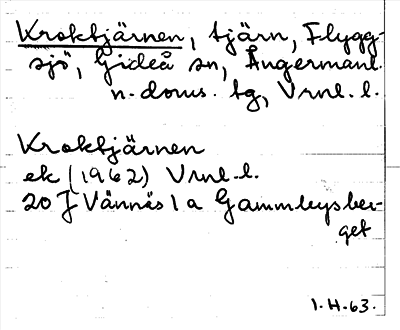 Kroktjärnen, tjärn, Flygg-
sjö, Gideå sn, Ångermanl.
n. doms. tg, Vrnl. l.
Kroktjärnen
ek (1962) Vrnl. l.
20 J Vännäs 1 a Gammleysber-
get
1. H. 63.